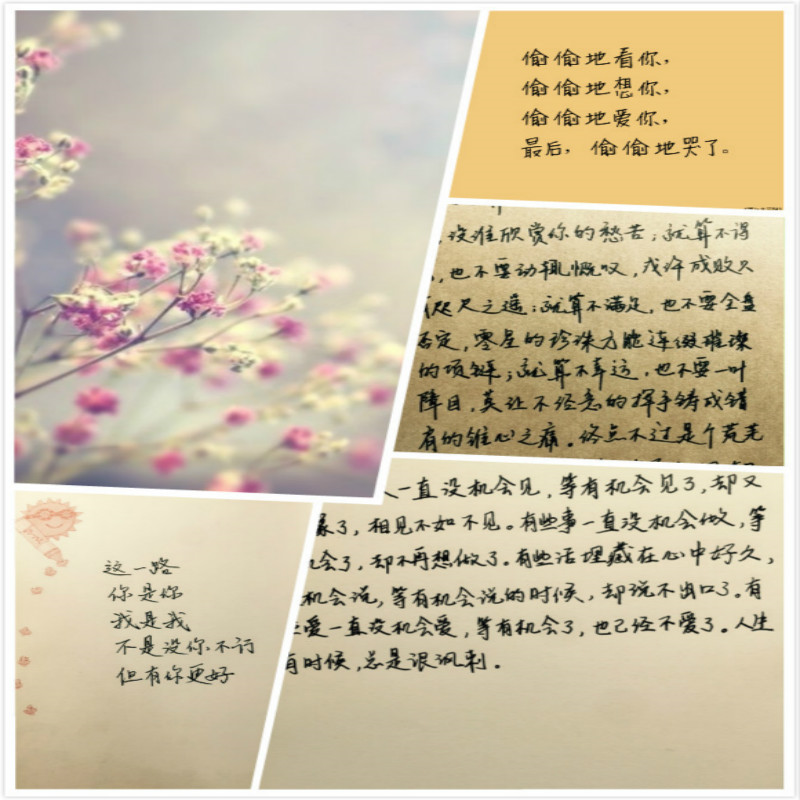 偷偷地看你，
偷偷地想你，
偷偷地爱你，
最后，偷偷地哭了。
，没谁欣赏你的愁苦；就算不得
，也不要动辄慨叹，或许成败只
咫尺之遥；就算不满足，也不要全盘
否定，零星的珍珠方能连缀璀璨
的项链；就算不幸运，也不要一叶
障目，莫让不经意的挥手铸成错
有的锥心之痛。终点不过是个荒芜
人一直没机会见，等有机会见了，却又
豫了，相见不如不见。有些事一直没机会做，等
机会了，却不再想做了。有些话埋藏在心中好久，
机会说，等有机会说的时候，却说不出口了。有
些爱一直没机会爱，等有机会了，也已经不爱了。人生
有时候，总是很讽刺。
这一路
你是你
我是我
不是没你不行
但有你更好